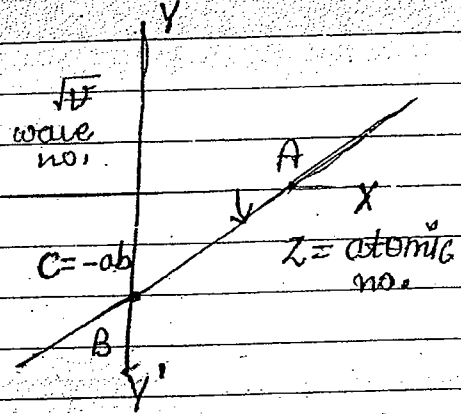 Y
√ν
wave
no.
A
X
C=-ab
Z= atomic
no.
B
Y'